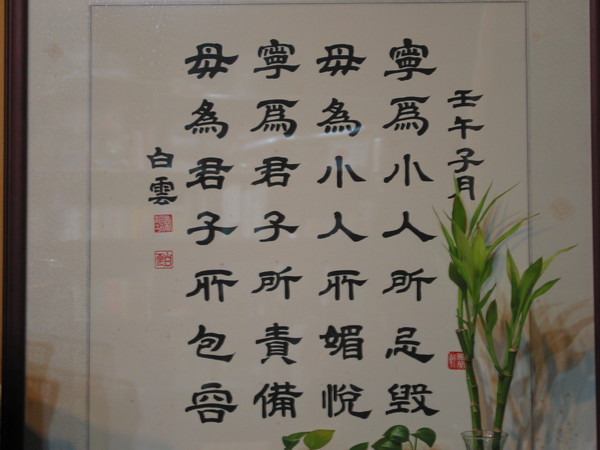 壬午子月
寧爲小人所忌毀
毋為小人所媚悅
寧爲君子所責備
毋為君子所包容
白雲